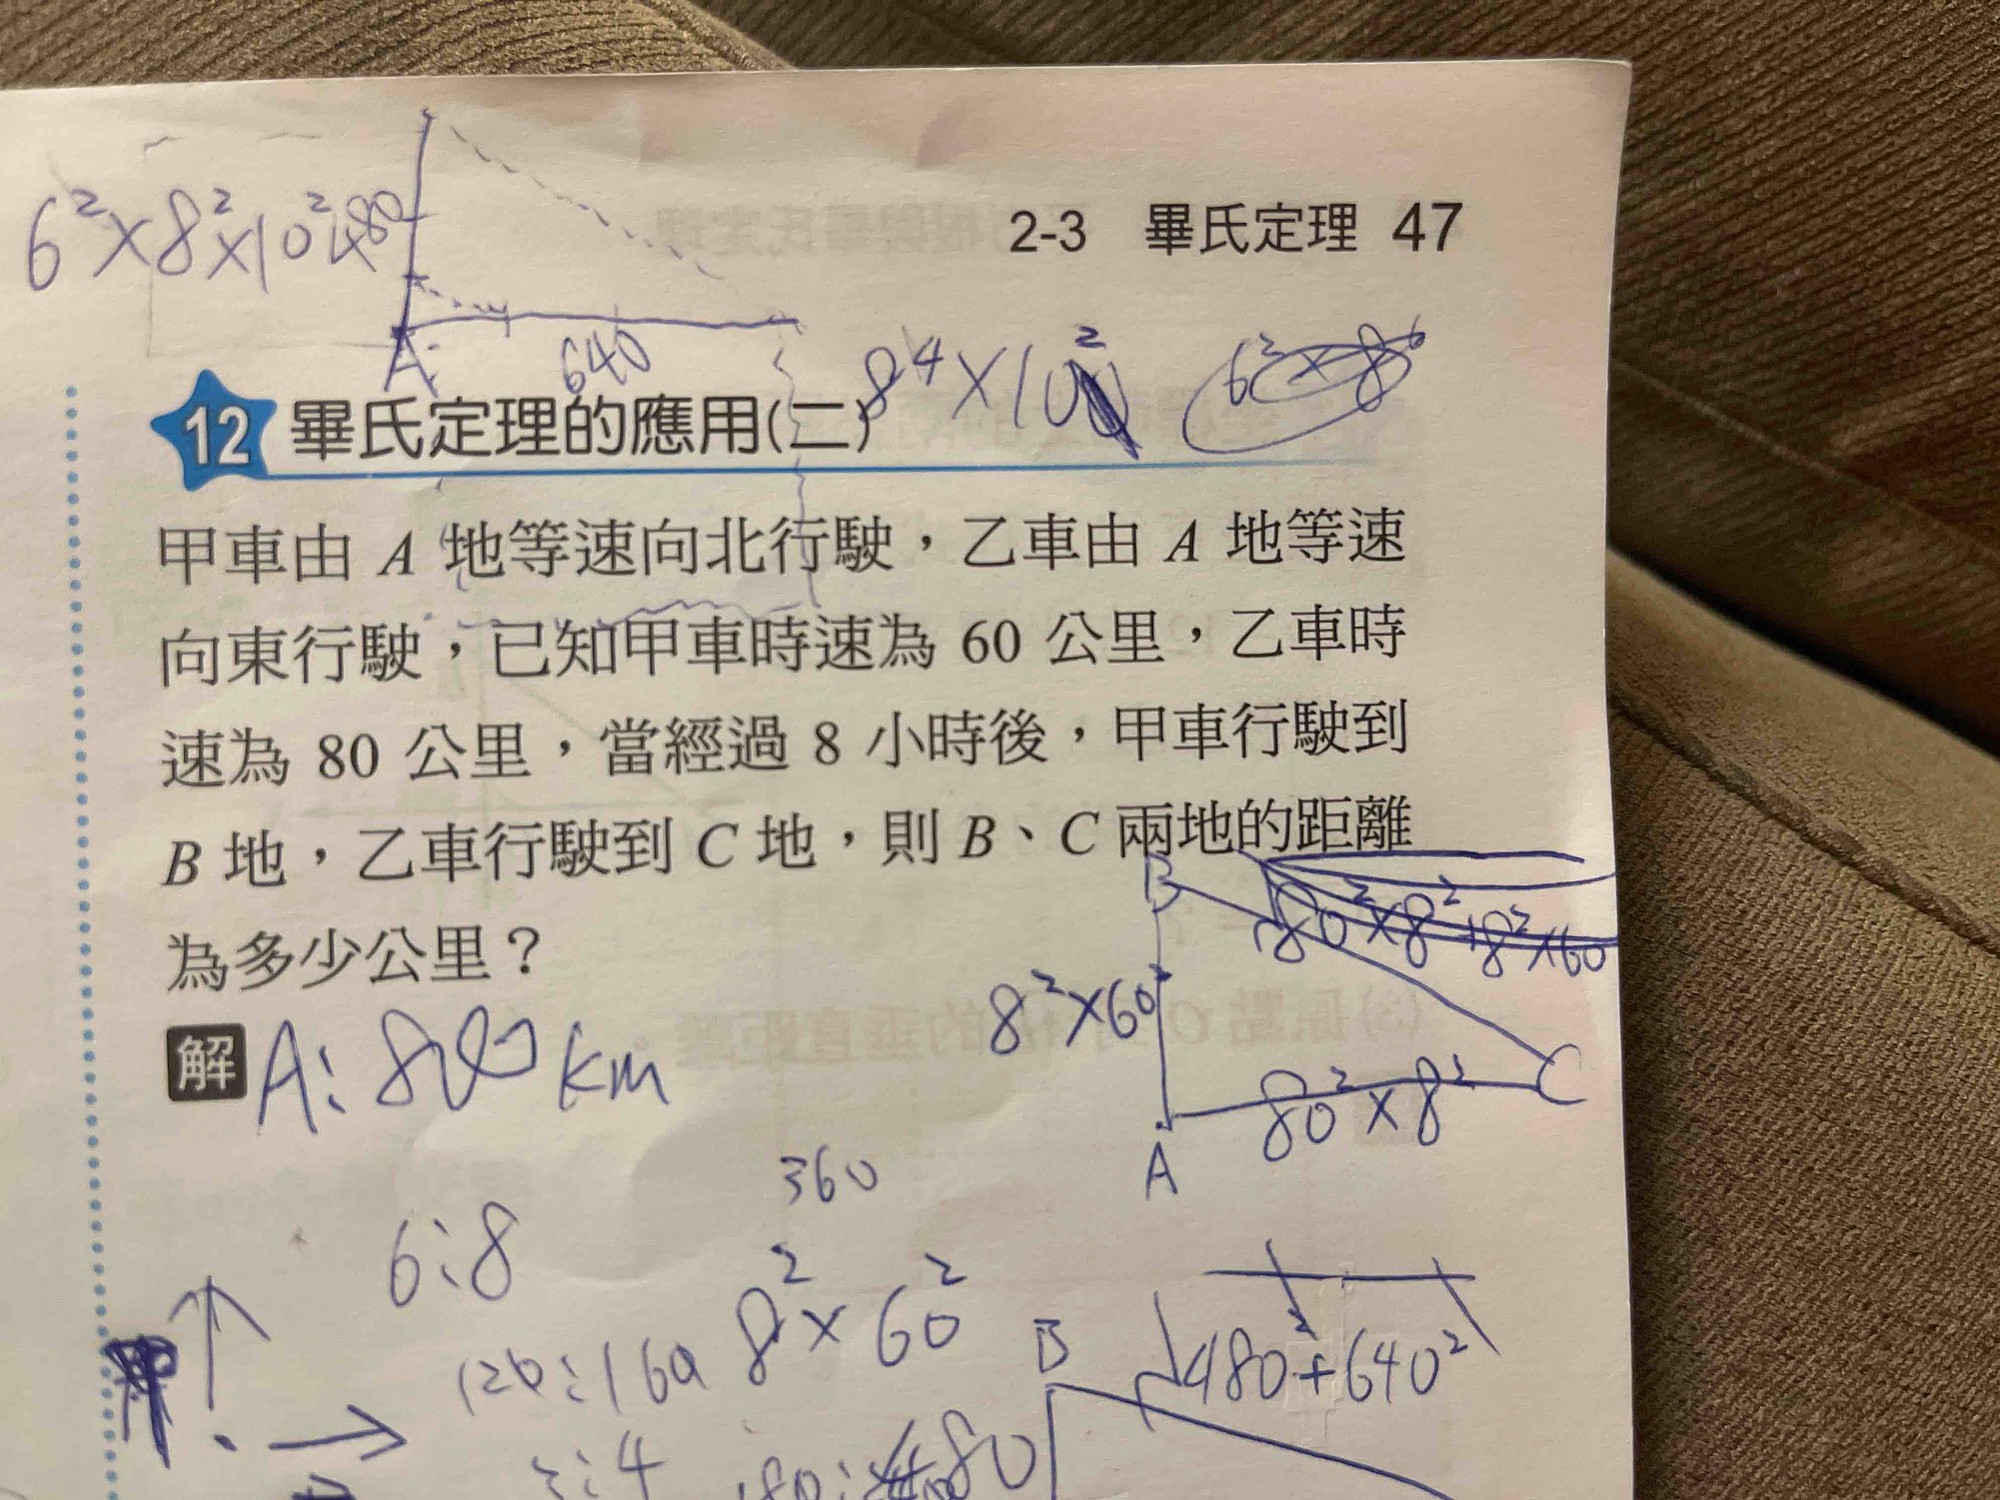 6²×8²×10² 480
2-3 畢氏定理 47
A 640
8⁴×10² 6²×8⁶
12 畢氏定理的應用(二)
甲車由 A 地等速向北行駛，乙車由 A 地等速
向東行駛，已知甲車時速為 60 公里，乙車時
速為 80 公里，當經過 8 小時後，甲車行駛到
B 地，乙車行駛到 C 地，則 B、C 兩地的距離
為多少公里？
B 80²×8²+8²×60
8²×60²
解 A：800 km
C
80²×8²
A
360
6：8
8²×60²
B
480²+640²
120：160
3：4
480